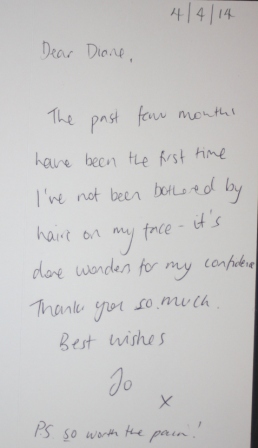 4/4/14
Dear Diane,
The past few months
have been the first time
I've not been bothered by
hair on my face - it's
done wonders for my confidence
Thank you so much.
Best wishes
Jo
x
PS so worth the pain!